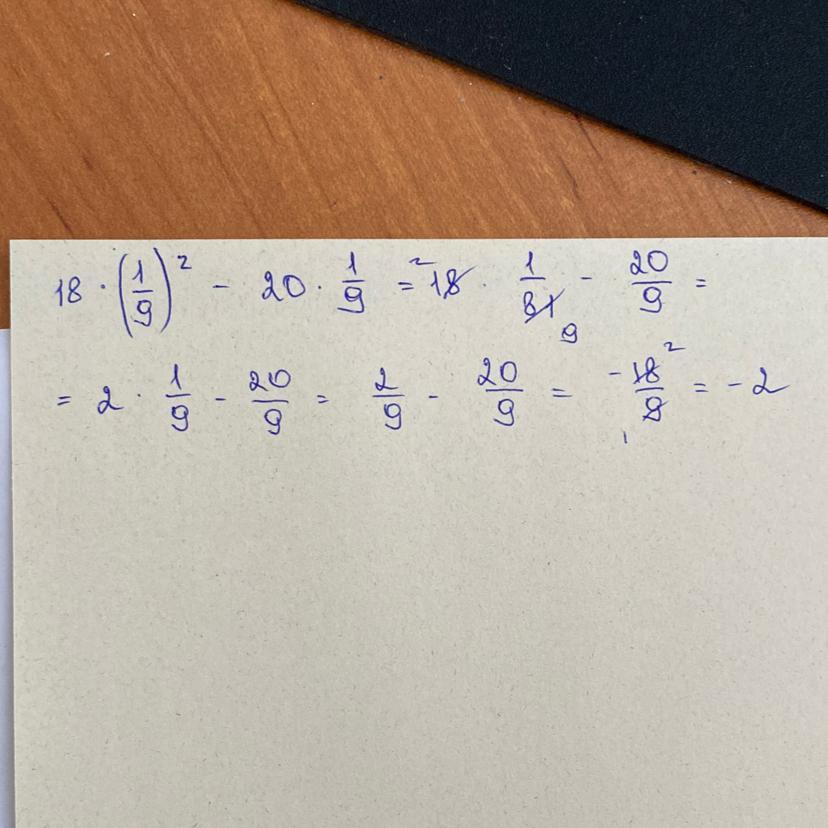 18 · (1/9)² - 20 · 1/9 = ²18 · 1/81 9 - 20/9 =
= 2 · 1/9 - 20/9 = 2/9 - 20/9 = -18²/9 1 = -2